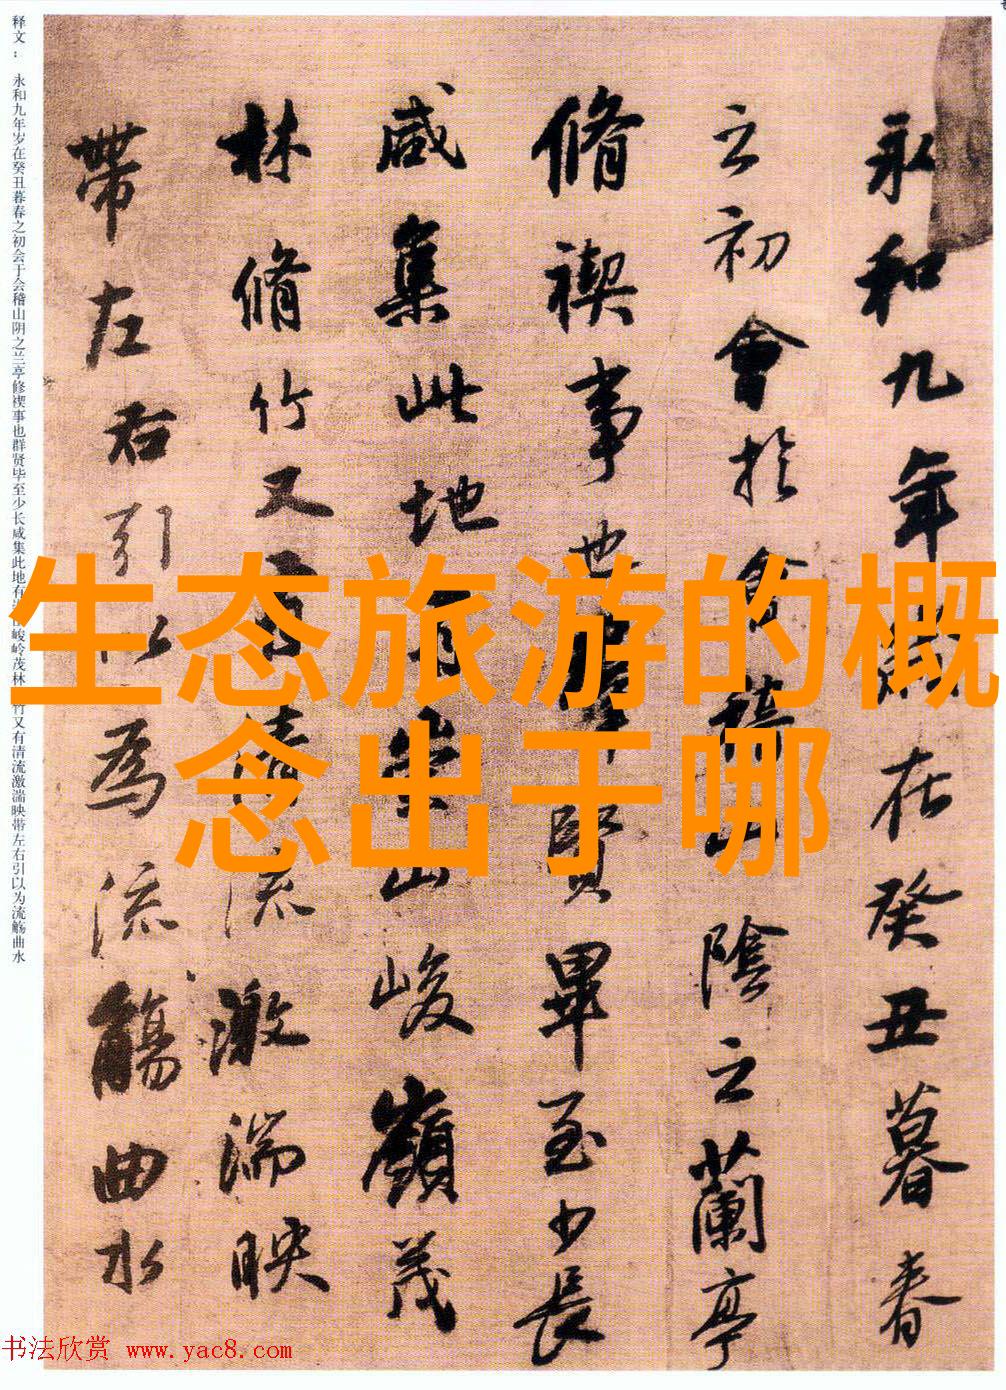 生态旅游的概
念出于哪
永和九年歲在癸丑暮春
之初會於會稽山陰之蘭亭
脩禊事也羣賢畢至少長
咸集此地有崇山峻嶺茂
林脩竹又有清流激湍映
帶左右引以為流觴曲水
释文： 永和九年岁在癸丑暮春之初会于会稽山阴之兰亭修禊事也群贤毕至少长咸集此地有峻岭茂林竹又有清流激湍映带左右引以为流觞曲水
书法欣赏 www.yac8.com